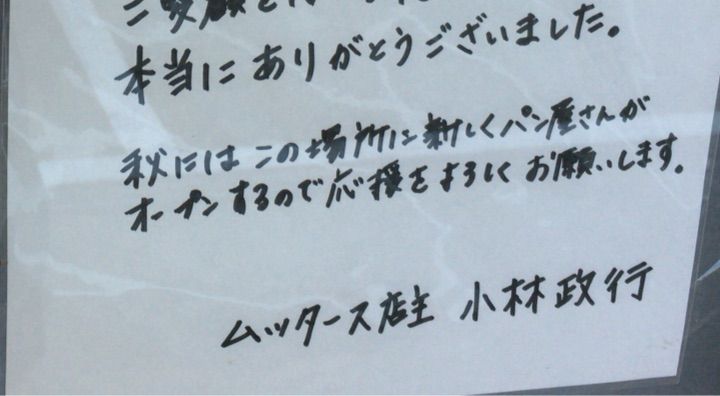 ご愛顧を
本当にありがとうございました。
秋にはこの場所に新しくパン屋さんが
オープンするので応援をよろしくお願いします。
ムッタース店主 小林政行